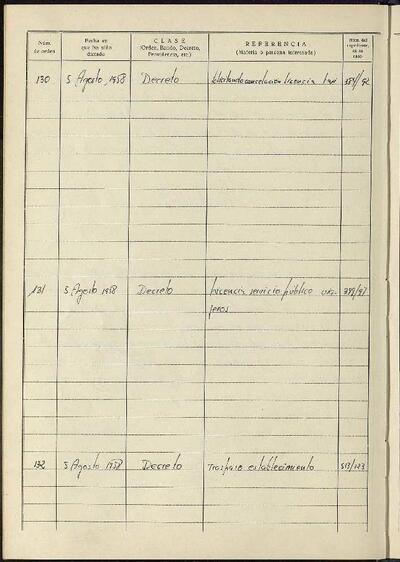 Núm. de orden
Fecha en que ha sido dictado
CLASE (Orden, Bando, Decreto, Providencia, etc.)
REFERENCIA (Materia o persona interesada)
Núm. del expediente, en su caso
130 5 Agosto, 1958 Decreto licencia
131 5 Agosto 1958 Decreto Licencia servicio público viajeros
132 5 Agosto 1958 Decreto Traspaso establecimiento 513/123